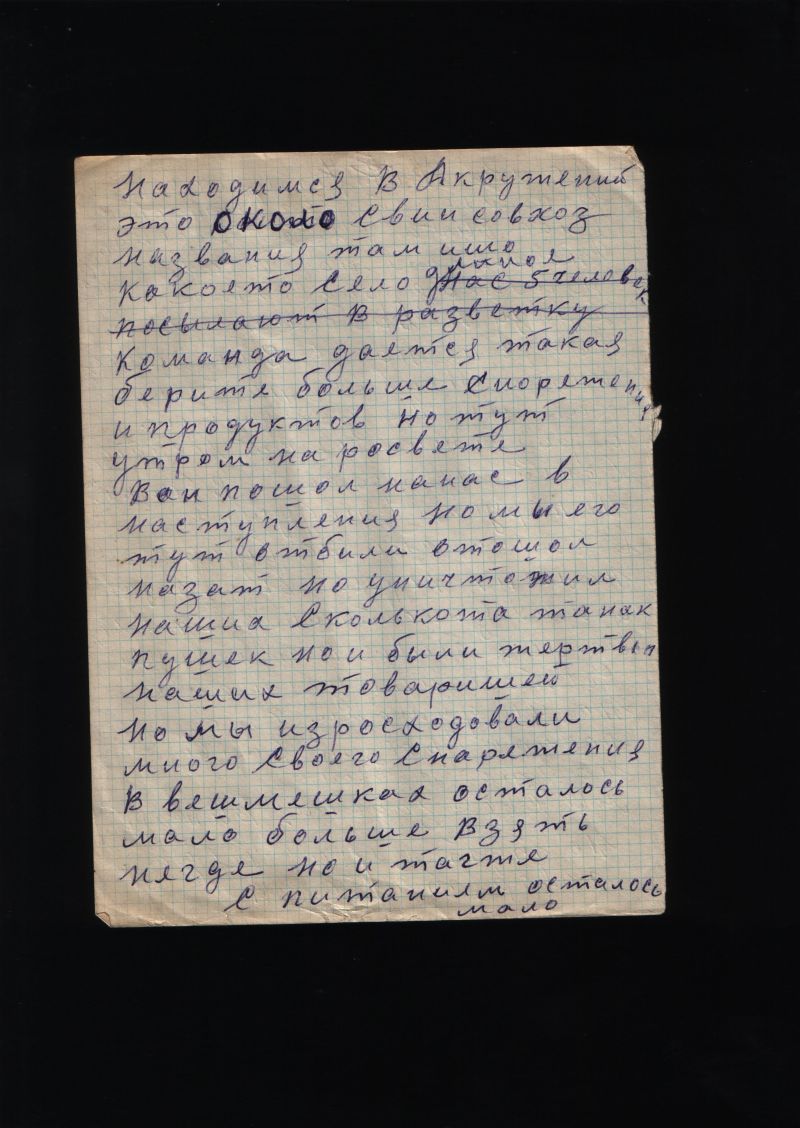 Находимся в Акружений
это около Свин совхоз
названия там ишо
какоето Село длиное
нас 5 человек
посылают в разветку
Команда дается такая
берите больше снорежения
и продуктов но тут
утром на росвете
Ван пошол нанас в
наступления но мы его
тут отбили отошол
назат но уничтожил
наших Сколькота танак
пушек но и были жертвы
наших товаришей
но мы изросходовали
много Своего Снаряжения
В вешмешках осталось
мало больше взять
негде но и тагже
С питанием осталось
мало